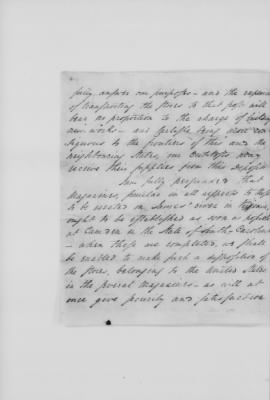 fully answer our purposes – and the expence
of transporting the stores to that post will
bear no proportion to the charge of building
new works – and Carlisle being more con
tiguous to the frontiers of this and the
neighbouring States, our Contests may
receive their supplies from this deposit
I am fully persuaded that
Magazines, similar in all respects to those
to be erected on James' river in Virginia,
ought to be established as soon as possible
at Camden in the State of South Carolina
– when these are completed, we shall
be enabled to make such a disposition of
the stores, belonging to the United States
in the several magazines – as will at
once give security and satisfaction